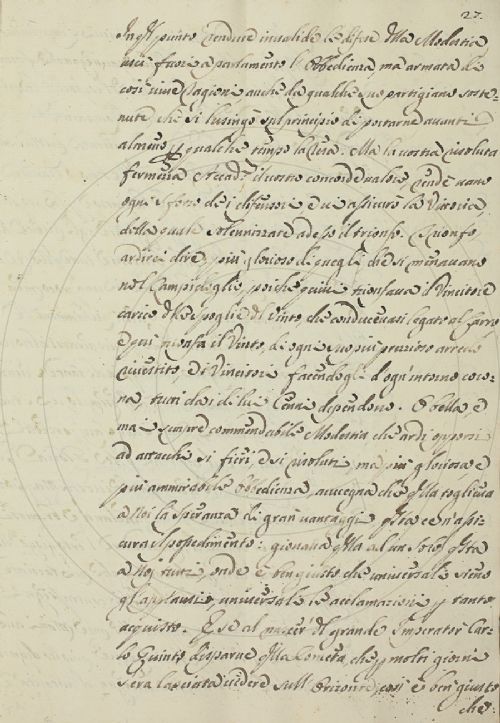 27.
punto rendure invalide le difese della Modestia,
uscì fuori a parlamento l'Obbedienza, mà armata di
così vive ragioni anche da qualche suo partigiano soste-
nute che si lusingò sul principio di portarne avanti
almeno p qualche tempo la . Ma la vostra risoluta
fermezza e il vostro concorde valore rende vano
ogni sforzo de i difensori e ve assicura la Vittoria
della quale solennizzate adesso il trionfo. Trionfo
ardirei dire, più glorioso di quegli che si miravano
nel Campidoglio, poiche quivi trionfava il Vincitore
carico delle spoglie del Vinto, che conducevasi legato al Carro
e qui trionfa il Vinto, di ogni suo più prezioso arredo
rivestito, e i Vincitori facendogli d'ogn'intorno coro-
na, tutti da i di lui Cenni dependono. O bella e
mai sempre commendabile Modestia che ardì opporsi
ad attacchi si fieri, e si risoluti, ma più gloriosa e
più ammirabile Obbedienza, avvegna che qlla toglieva
a Noi la speranza di gran vantaggi qsta ce n'assi-
cura il possedimento: giovava qlla ad un solo qsta
a Noi tutti, onde è ben giusto che universali sieno
gl'applausi, universali le acclamazioni p tanto
acquisto. E se al nascer del grande Imperator Car-
lo Quinto disparve qlla Cometa, che p molti giorni
s'era lasciata vedere sull'Orizonte, così è ben giusto
che